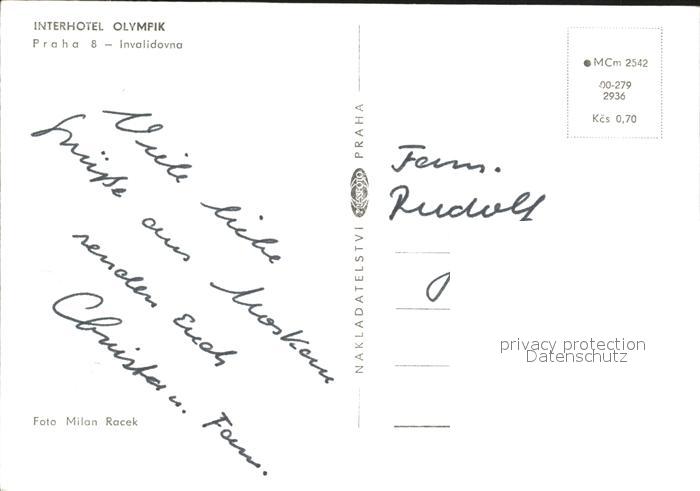 INTERHOTEL OLYMPIK
Praha 8 – Invalidovna
Viele liebe
Grüße aus Moskau
senden Euch
Christa u. Fam.
Foto Milan Racek
NAKLADATELSTVÍ PRESSFOTO PRAHA
MCm 2542
00-279
2936
Kčs 0,70
Fam.
Rudolf
privacy protection
Datenschutz